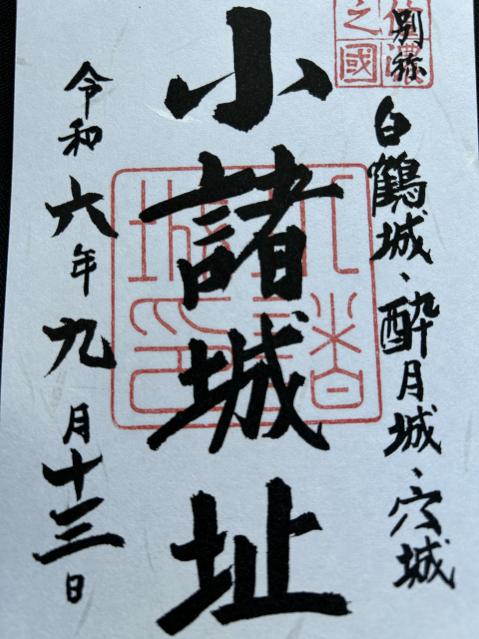 別称 白鶴城・酔月城・穴城
信濃之國
小諸城址
令和六年九月十三日